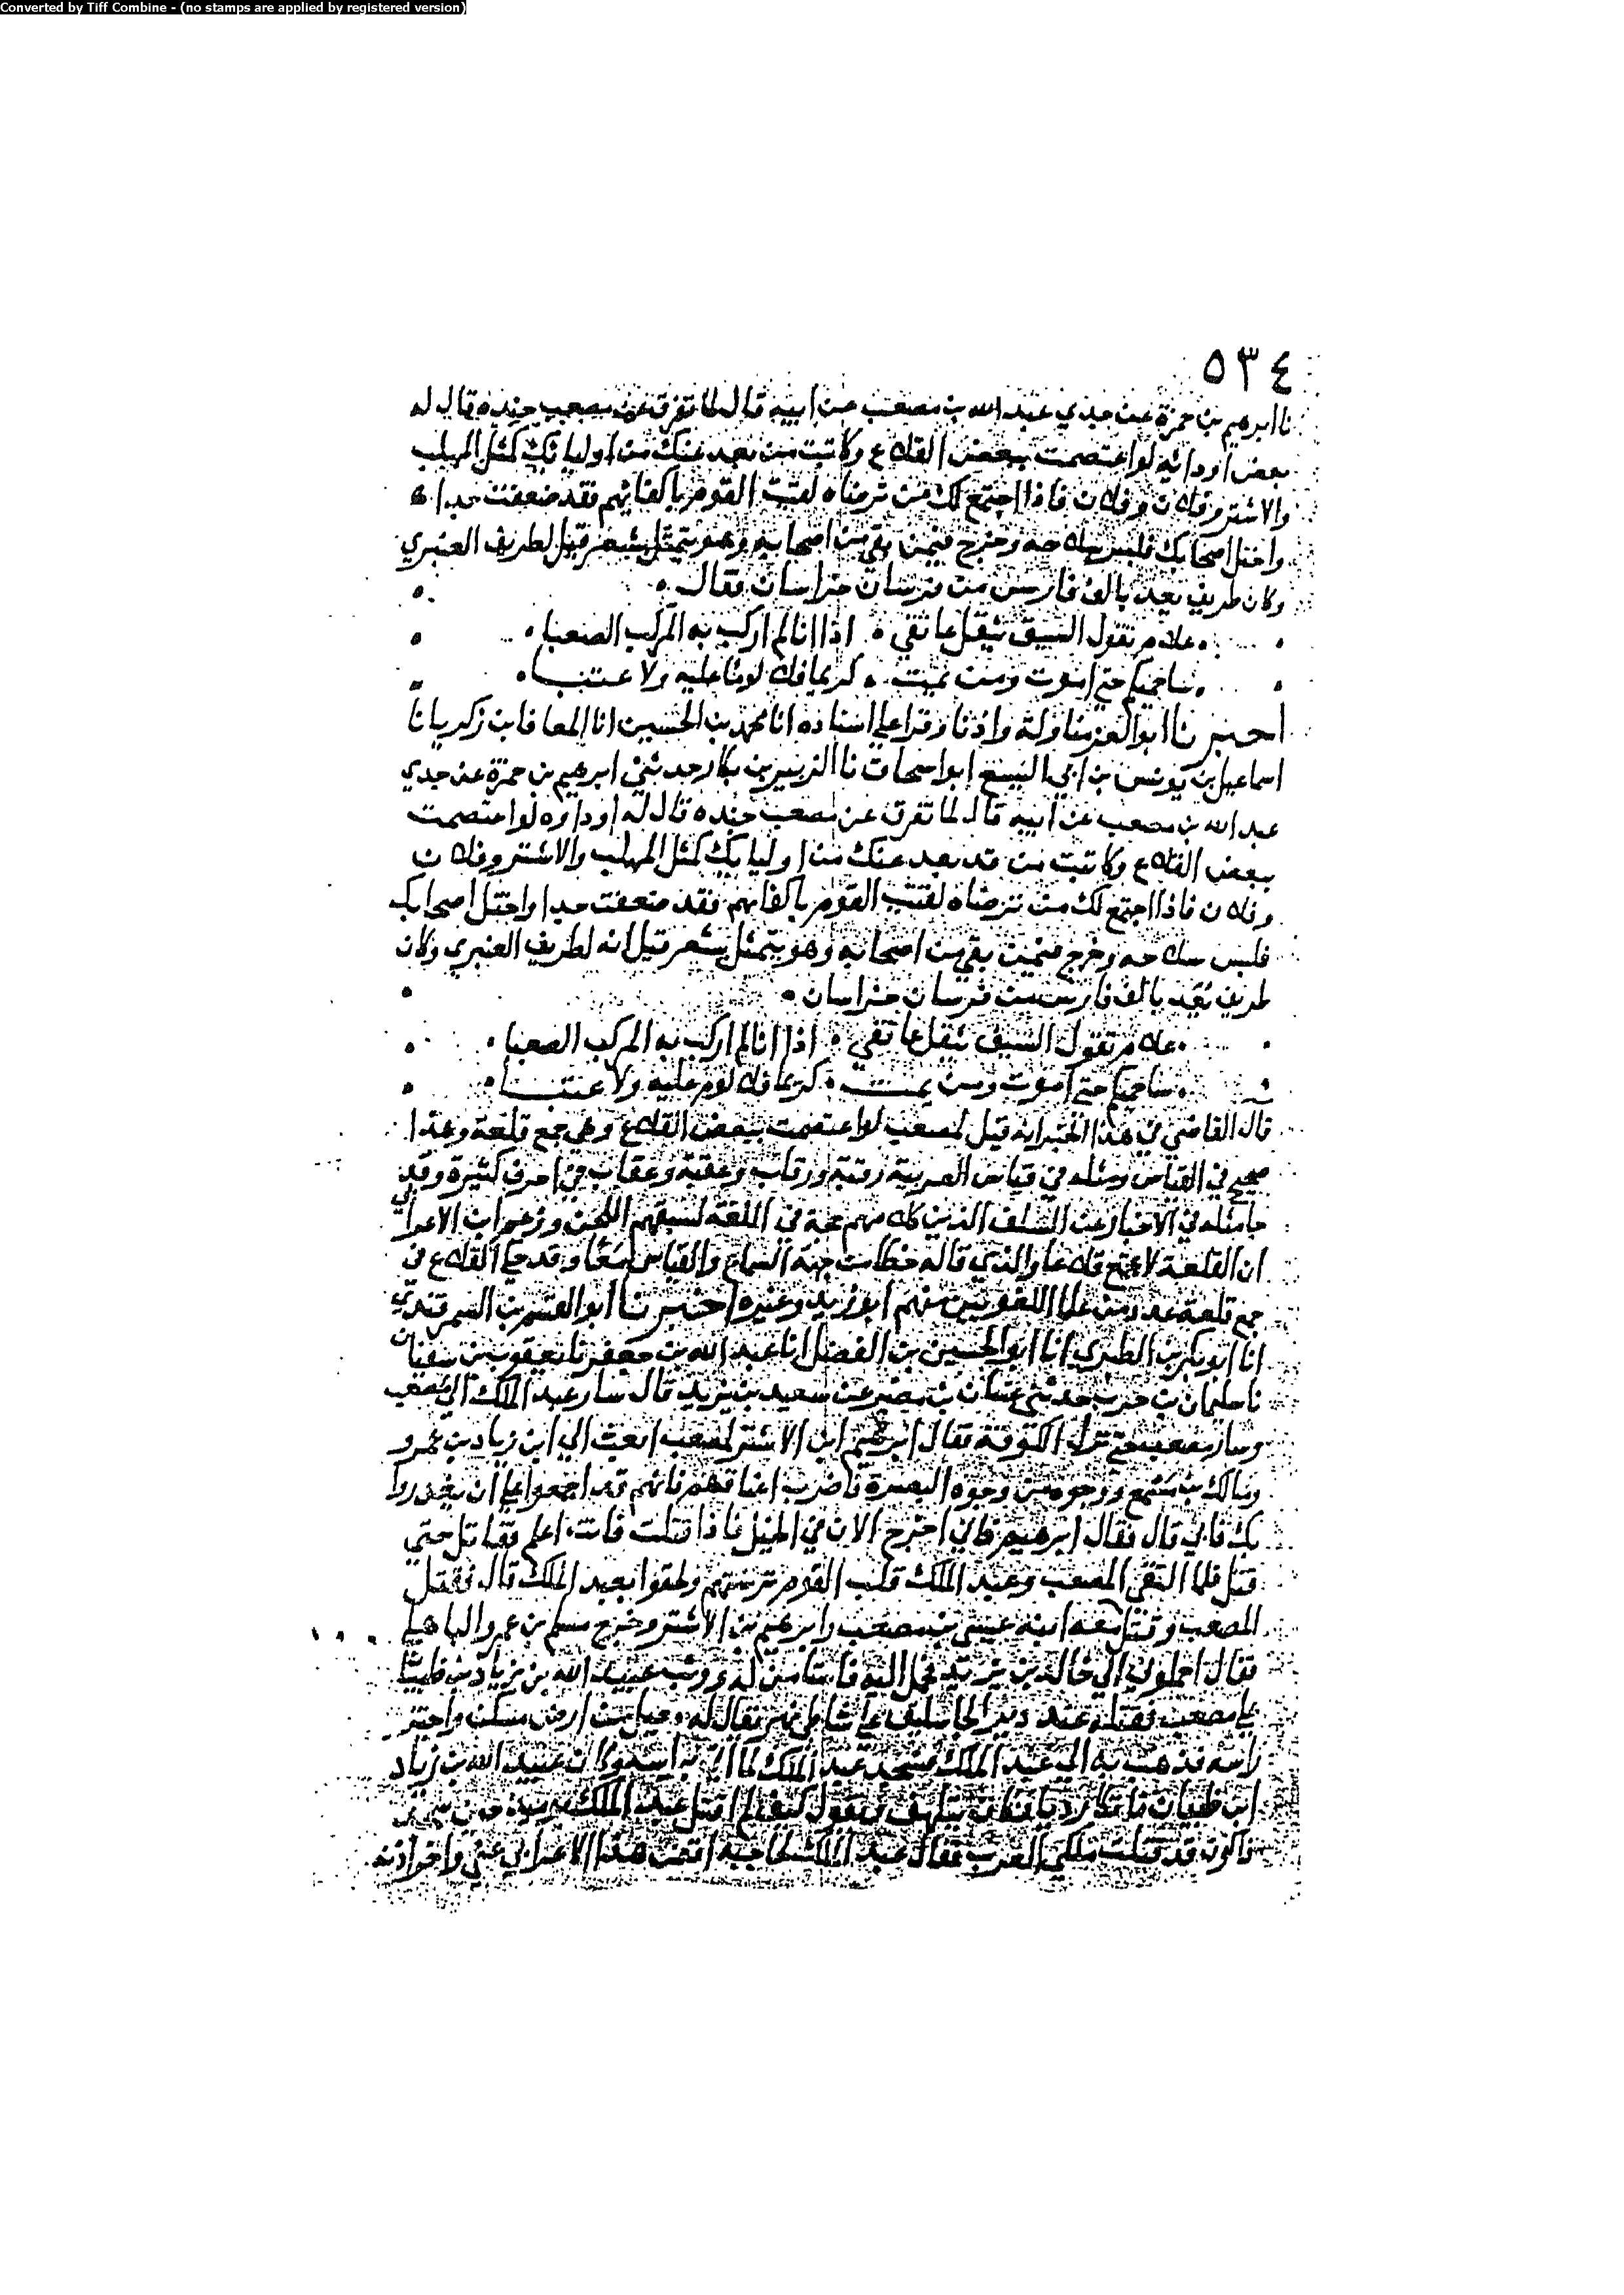 Converted by Tiff Combine - (no stamps are applied by registered version)
٥٣٤
نا ابرهيم بن حمزة عن جدي عبد الله بن مصعب عن ابيه قال لما تفرق عن مصعب جنده قال له
بعض اودائه لو اعتصمت ببعض القلاع وكاتبت من بعد عنك من اوليائك كمثل المهلب
والاشتر وفلان وفلان فاذا اجتمع لك من ترضاه لقيت القوم باكفائهم فقد ضعفت جدا
واختل اصحابك فلبس سلاحه وخرج فيمن بقي من اصحابه وهو يتمثل بشعر قيل لطريف العنبري
وكان طريف يعد بالف فارس من فرسان خراسان فقال
علام تقول السيف يثقل عاتقي اذا انا لم اركب به المركب الصعبا
ساحميكم حتى اموت ومن يمت كريما فلا لوما عليه ولا عتبا
اخبرنا ابو العز مناولة واذنا وقرا علي اسناده انا محمد بن الحسين انا المعافا بن زكريا نا
اسماعيل بن يونس بن ابي اليسع ابو اسحاق نا الزبير بن بكار حدثني ابرهيم بن حمزة عن جدي
عبد الله بن مصعب عن ابيه قال لما تفرق عن مصعب جنده قال له اوداوه لو اعتصمت
ببعض القلاع وكاتبت من قد بعد عنك من اوليايك كمثل المهلب والاشتر وفلان
وفلان فاذا اجتمع لك من ترضاه لقيت القوم باكفائهم فقد ضعفت جدا واختل اصحابك
فلبس سلاحه وخرج فيمن بقي من اصحابه وهو يتمثل بشعر قيل انه لطريف العنبري وكان
طريف يعد بالف فارس من فرسان خراسان
علام تقول السيف يثقل عاتقي اذا انا لم اركب به المركب الصعبا
ساحميكم حتى اموت ومن يمت كريما فلا لوم عليه ولا عتبا
قال القاضي في هذا الخبر انه قيل لمصعب لو اعتصمت ببعض القلاع وهي جمع قلعة وهذا
صحيح في القياس ومثله في قياس العربية رقبة ورقاب وعقبة وعقاب في احرف كثيرة وقد
جا مثله في الاخبار عن السلف الذين كلامهم حجة في اللغة لسبقهم اللحن وزعم ابن الاعرابي
ان القلعة لا تجمع قلاعا والذي قاله خطا من جهة السماع والقياس معا وقد حكى القلاع في
جمع قلعة عدد من علما اللغويين منهم ابو زيد وغيره اخبرنا ابو القسم بن السمرقندي
انا ابو بكر بن الطبري انا ابو الحسين بن الفضل انا عبد الله بن جعفر نا يعقوب بن سفيان
نا سليمان بن حرب حدثني غسان بن مضر عن سعيد بن يزيد قال سار عبد الملك الى مصعب
وسار مصعب حتى نزل الكوفة فقال ابرهيم ابن الاشتر لمصعب ابعث الي ابن زياد بن عمرو
ومالك بن مسمع ووجوه من وجوه البصرة فاضرب اعناقهم فانهم قد اجمعوا على ان يغدروا
بك فابى قال فقال ابرهيم فاني اخرج الان في الخيل فاذا قتلت فانت اعلم فقاتل حتى
قتل فلما التقى المصعب وعبد الملك قلب القوم ترستهم ولحقوا بعبد الملك قال فقتل
المصعب وقتل معه ابنه عيسى بن مصعب وابرهيم بن الاشتر وخرج مسلم بن عمرو الباهلي
فقال احملوني الى خالد بن يزيد فحمل اليه فاستامن له ووثب عبيد الله بن زياد بن ظبيان
على مصعب فقتله عند دير الجاثليق على شاطي نهر يقال له دجيل من ارض مسكن واحتز
راسه فذهب به الى عبد الملك فسجد عبد الملك لما اتى به اسه وكان عبيد الله بن زياد
ابن ظبيان فاتكا رديا فكان يتلهف ويقول كيف لم اقتل عبد الملك يوميذ حين سجد
فاكون قد قتلت ملكي العرب فقال عبد الملك لحاجبه اقصر هذا الاعرابي عني واخر اذنه